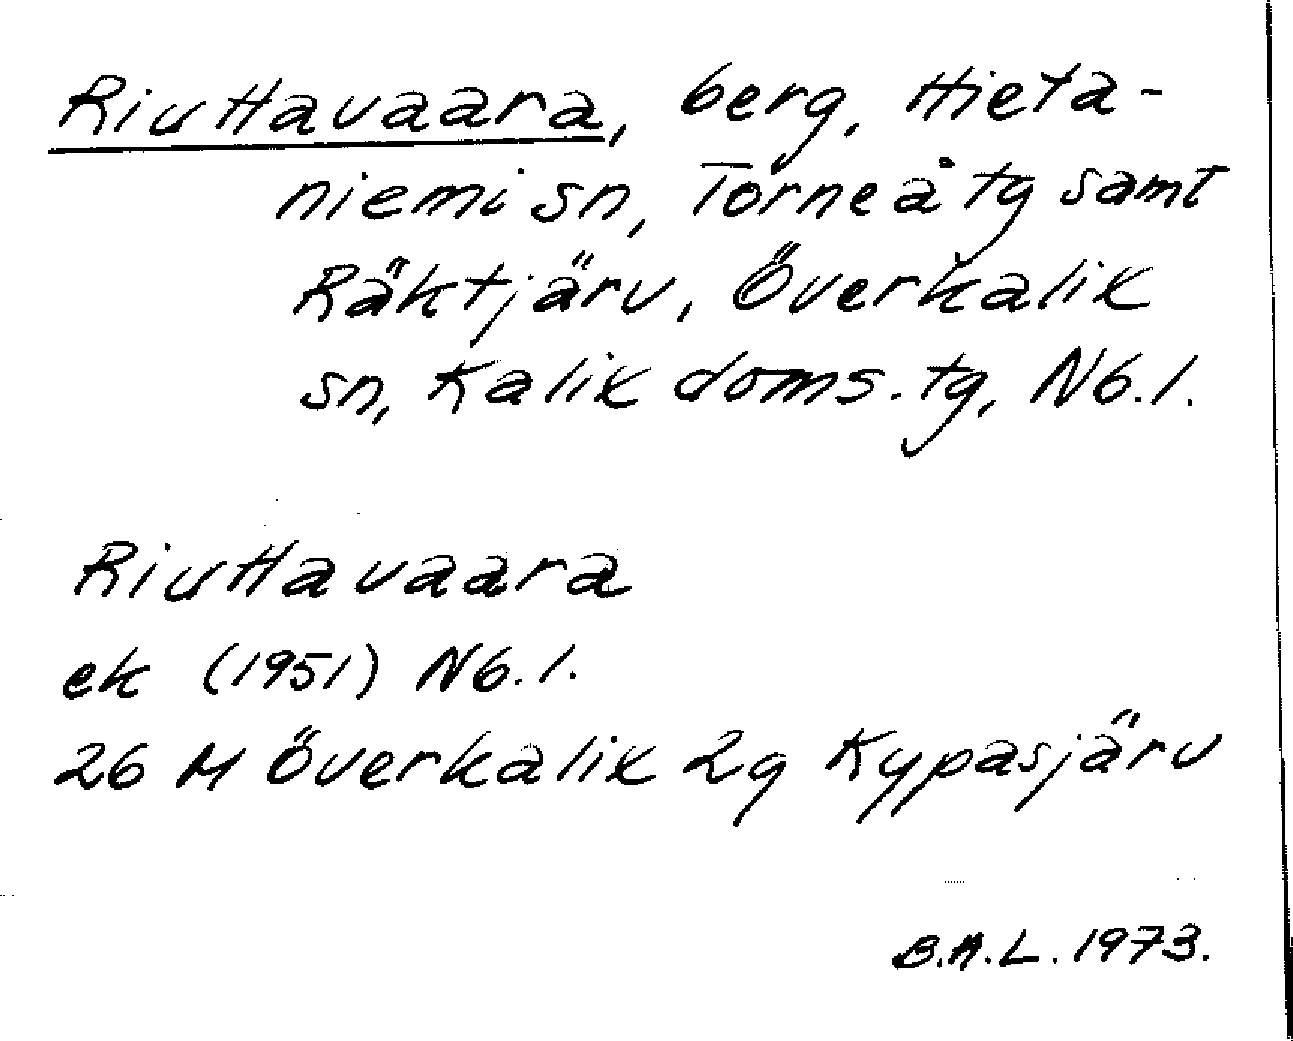 Riuttavaara, berg, Hieta-
niemi sn, Torneå tg samt
Räktjärv, Överkalix
sn, Kalix doms. tg, Nb. l.
Riuttavaara
ek (1951) Nb. l.
26 M Överkalix 2g Kypasjärv
B.A.L. 1973.